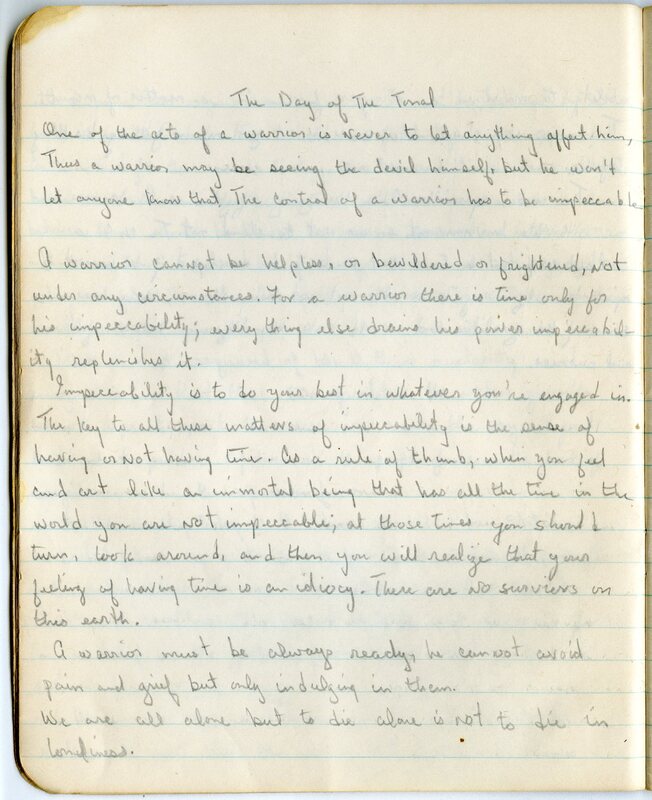 The Day of The Tonal
One of the acts of a warrior is never to let anything affect him,
Thus a warrior may be seeing the devil himself, but he won't
let anyone know that. The control of a warrior has to be impeccable
A warrior cannot be helpless, or bewildered or frightened, not
under any circumstances. For a warrior there is time only for
his impeccability; everything else drains his power impeccabil-
ity replenishes it.
Impeccability is to do your best in whatever you're engaged in.
The key to all these matters of impeccability is the sense of
having or not having time. As a rule of thumb, when you feel
and act like an immortal being that has all the time in the
world you are not impeccable; at those times you should
turn, look around, and then you will realize that your
feeling of having time is an idiocy. There are no surviers on
this earth.
A warrior must be always ready, he cannot avoid
pain and grief but only indulging in them.
We are all alone but to die alone is not to die in
loneliness.